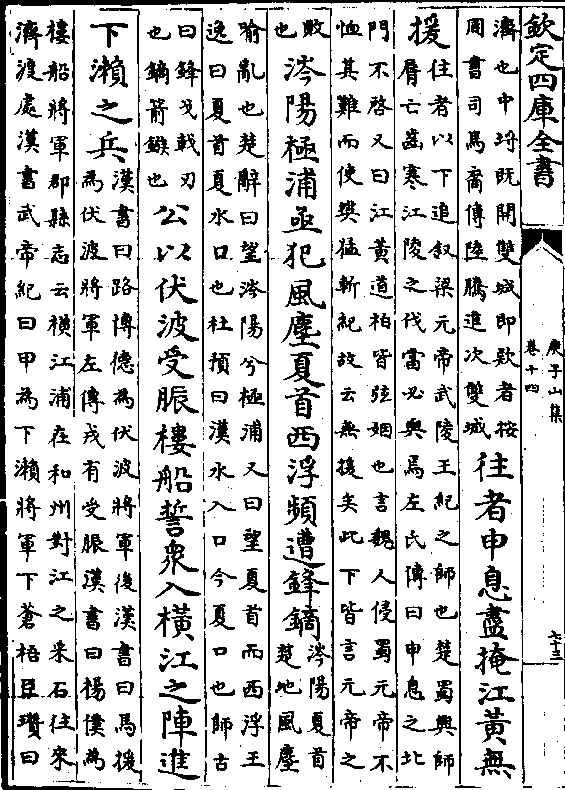 欽定四庫全書
庾子山集
卷十四
七十三
濟也中㺿既開雙城即欵者按
周書司馬裔傳陸騰進次雙城
往者申息盡掩江黄無
援
往者以下追叙梁元帝武陵王紀之師也楚蜀興師
脣亡齒寒江陵之伐當必與焉左氏傳曰申息之北
門不啓又曰江黄道柏皆弦姻也言魏人侵蜀元帝不
恤其難而使樊猛斬紀故云無援矣此下皆言元帝之
敗
也
涔陽極浦亟犯風塵夏首西浮頻遭鋒鏑
涔陽夏首
楚地風塵
喻亂也楚辭曰望涔陽兮極浦又曰望夏首而西浮王
逸曰夏首夏水口也杜預曰漢水入口今夏口也師古
曰鋒戈戟刃
也鏑箭鏃也
公以伏波受脤樓船誓衆入橫江之陣進
下瀨之兵
漢書曰路博德為伏波將軍後漢書曰馬援
為伏波將軍左傳戎有受脤漢書曰楊僕為
樓船將軍郡縣志云橫江浦在和州對江之采石往來
濟渡處漢書武帝紀曰甲為下瀨將軍下蒼梧臣瓚曰